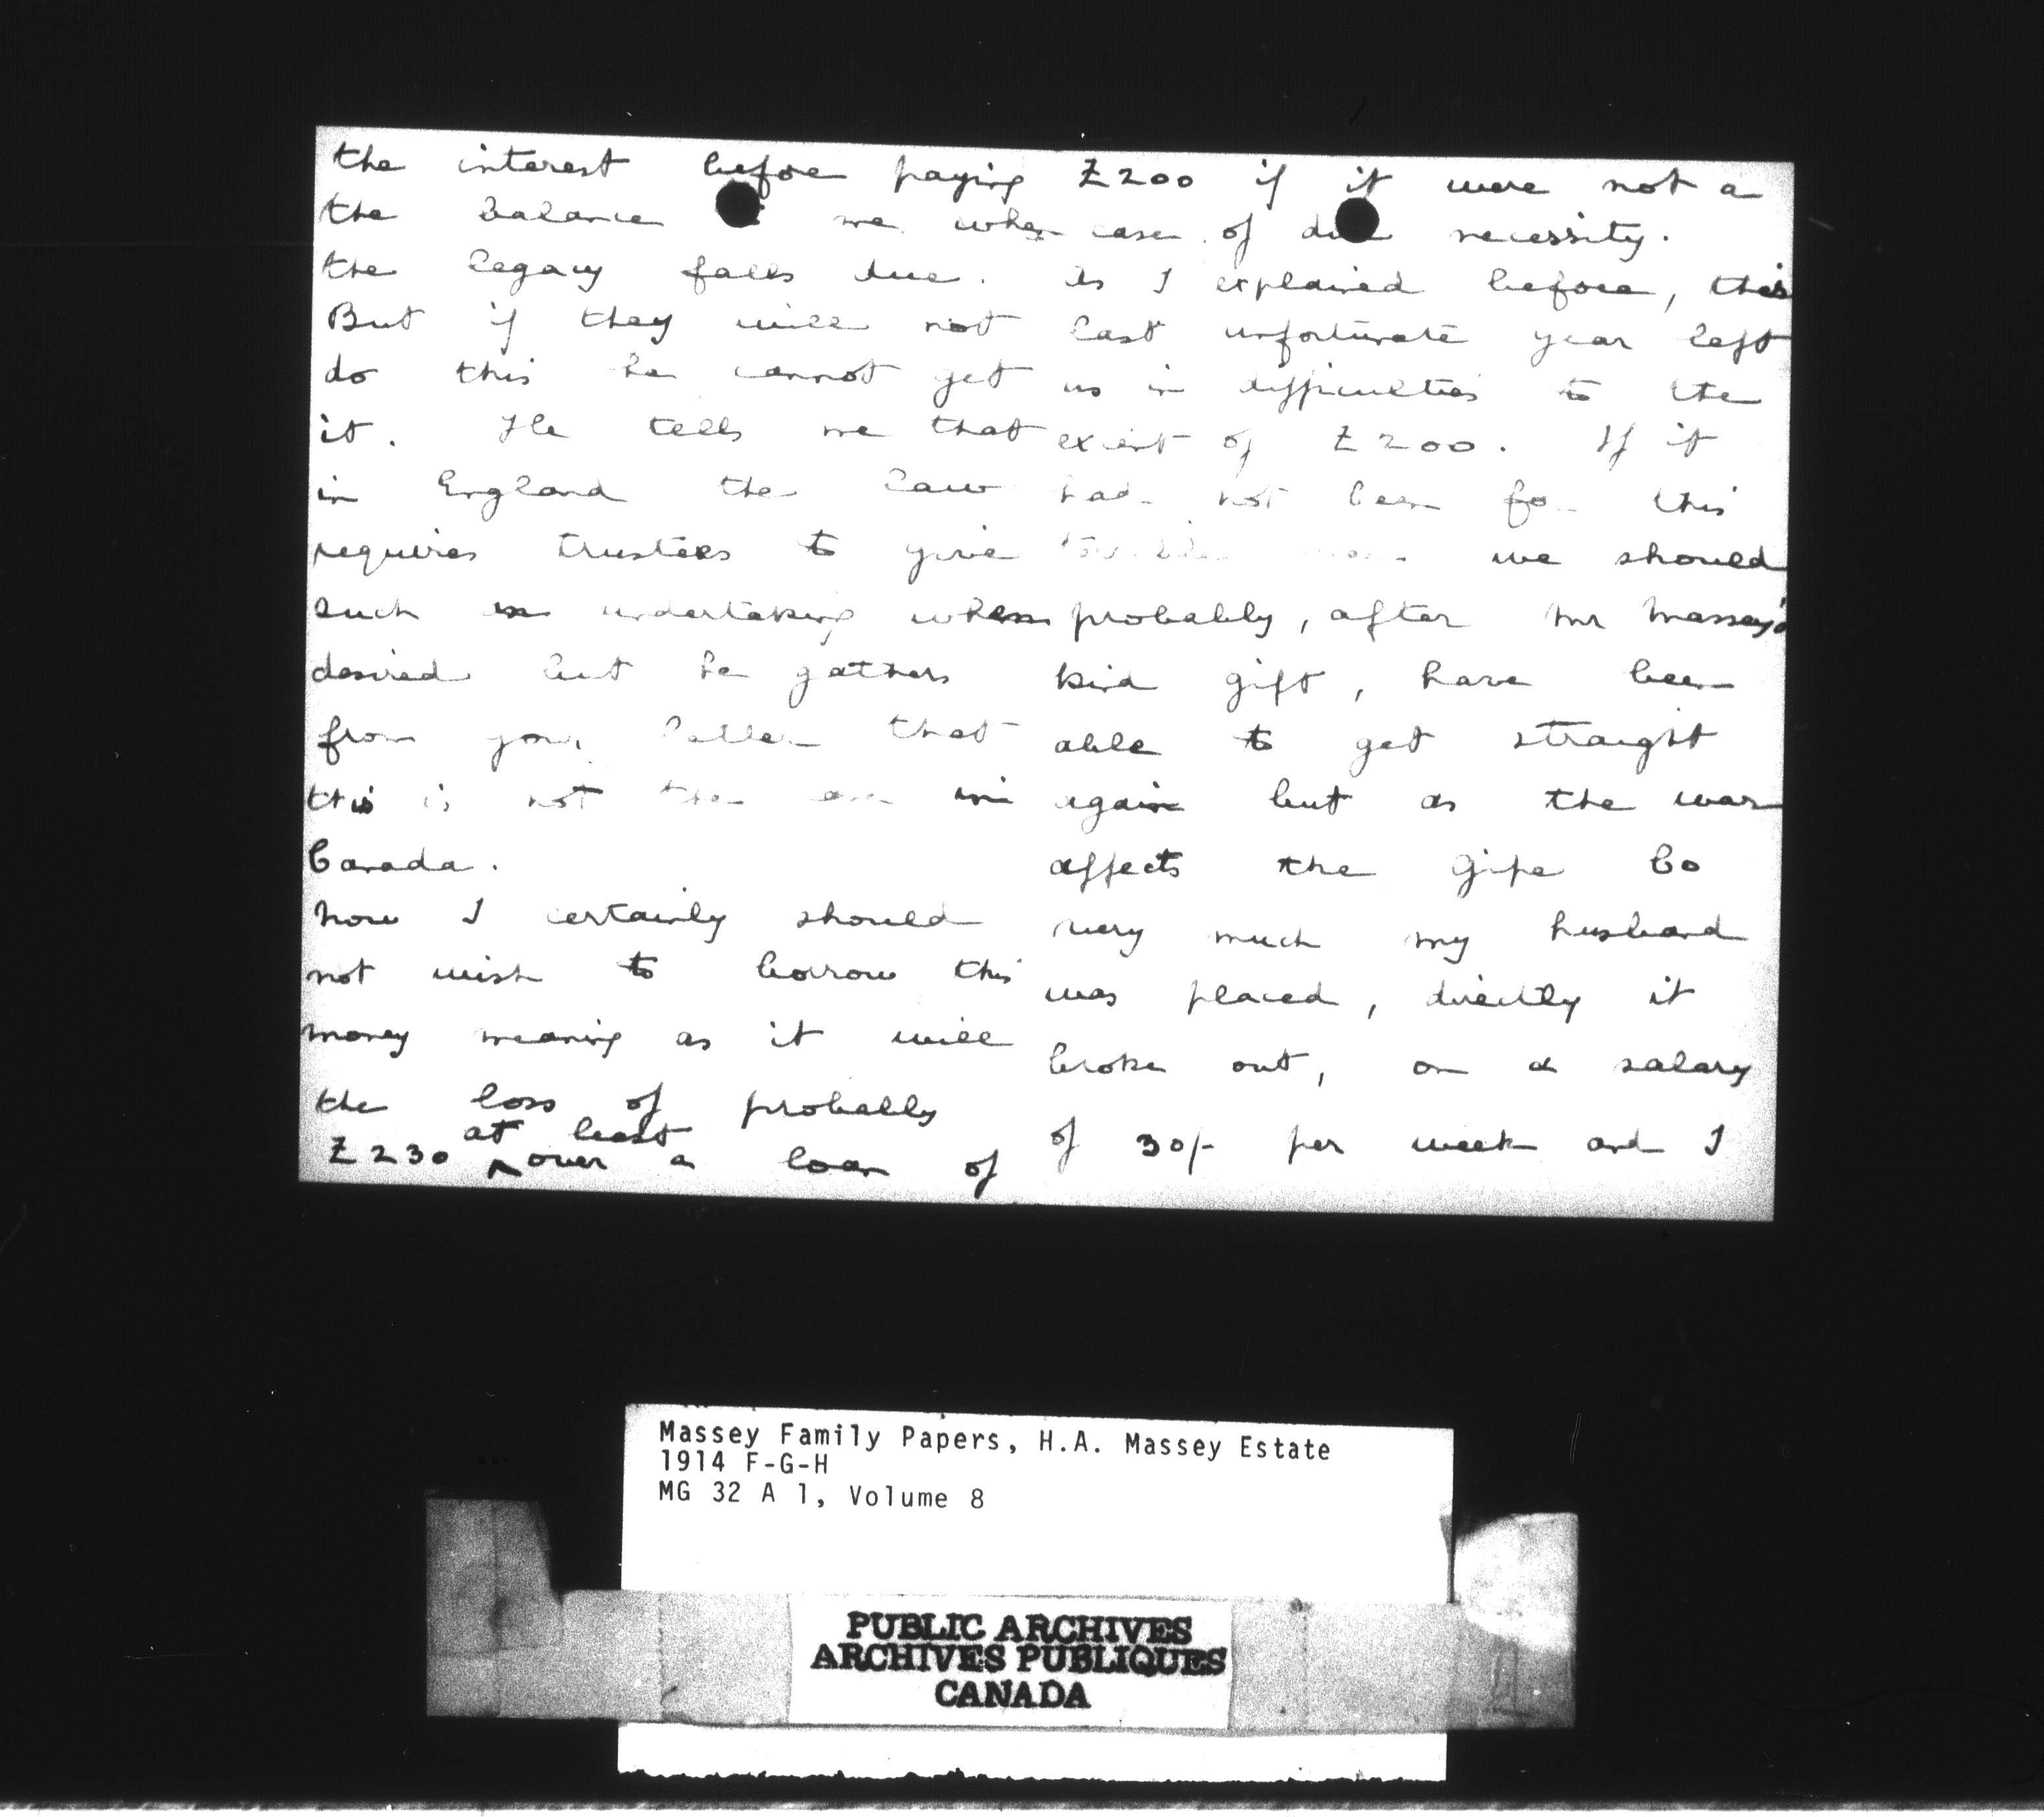 the interest before paying
the balance me when
the legacy falls due.
But if they will not
do this he cannot get
it. He tells me that
in England the law
requires trustees to give
such an undertaking when
desired but he gathers
from your letter that
this is not the case in
Canada.
Now I certainly should
not wish to borrow this
money meaning as it will
the loss of probably
at least
£230 ^ over a loan of
£200 if it were not a
case of dire necessity.
As I explained before, this
last unfortunate year left
us in difficulties to the
extent of £200. If it
had not been for this
terrible war we should
probably, after Mr Massey's
kind gift, have been
able to get straight
again but as the war
affects the Co
very much my husband
was placed, directly it
broke out, on a salary
of 30/- per week and I
Massey Family Papers, H.A. Massey Estate
1914 F-G-H
MG 32 A 1, Volume 8
PUBLIC ARCHIVES
ARCHIVES PUBLIQUES
CANADA